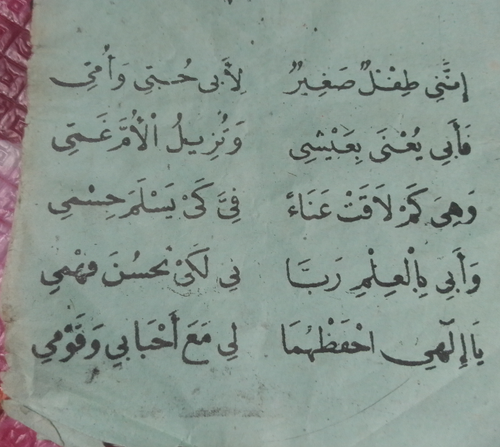 إِنَّنِي طِفْلٌ صَغِيرٌ لِأَبِي حُبِّي وَأُمِّي
فَأَبِي يُعْنَى بِعَيْشِي وَتُزِيلُ الْأُمُّ غَمِّي
وَهِيَ كَمْ لَاقَتْ عَنَاءً فِيَّ كَيْ يَسْلَمَ جِسْمِي
وَأَبِي بِالْعِلْمِ رَبَّا نِي لَكَيْ يَحْسُنَ فَهْمِي
يَا إِلٰهِي احْفَظْهُمَا لِي مَعَ أَحْبَابِي وَقَوْمِي